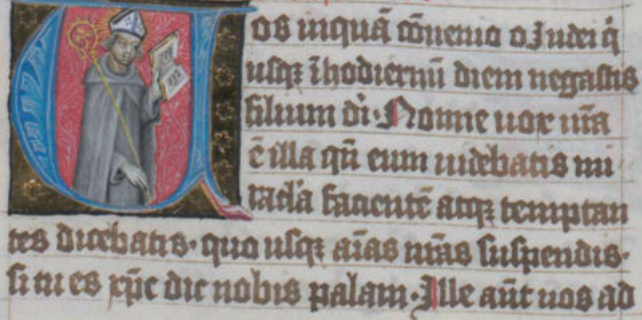 Vos inquā cōuenio o Iudei q̄
usqꝫ ī hodiernū diem negastis
filium dī. Nonne uox ur̄a
ē illa qn̄ eum uidebatis mi
racl̄a faciente atqꝫ temptan
tes dicebatis. quo usqꝫ aīas nr̄as suspendis.
si tu es xp̄c dic nobis palam. Ille aūt uos ad